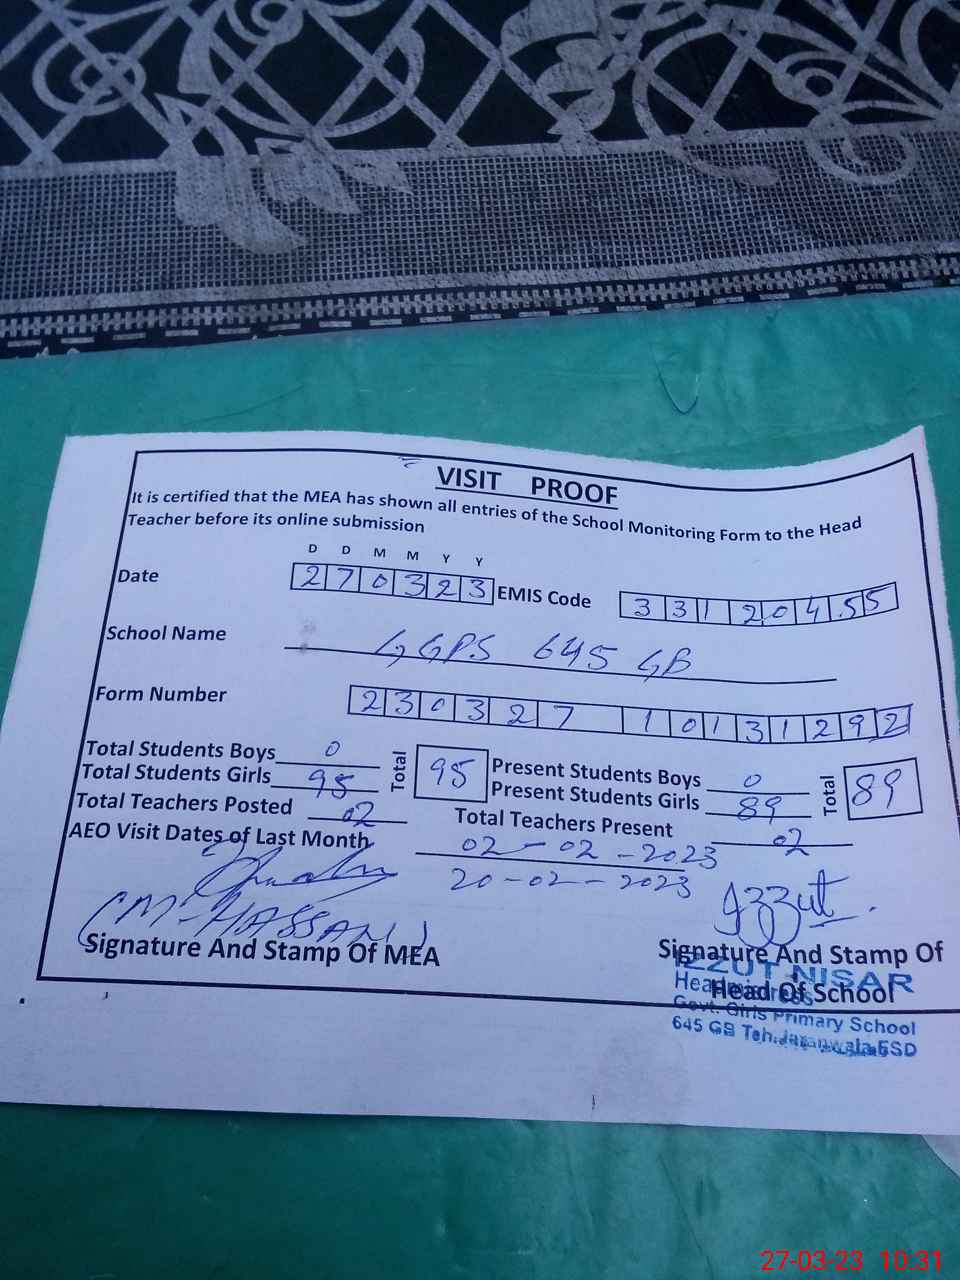 VISIT PROOF
It is certified that the MEA has shown all entries of the School Monitoring Form to the Head
Teacher before its online submission
D D M M Y Y
Date 270323 EMIS Code 33120455
School Name GGPS 645 GB
Form Number 230327 10131292
Total Students Boys 0 Total 95 Present Students Boys 0 Total 89
Total Students Girls 95 Present Students Girls 89
Total Teachers Posted 02 Total Teachers Present 02
AEO Visit Dates of Last Month 02-02-2023
20-02-2023
Izzut.
(M-HASSAN)
Signature And Stamp Of MEA Signature And Stamp Of
Head Of School
IZZUT NISAR
Headmistress
Govt. Girls Primary School
645 GB Teh. Jaranwala FSD
27-03-23 10:31